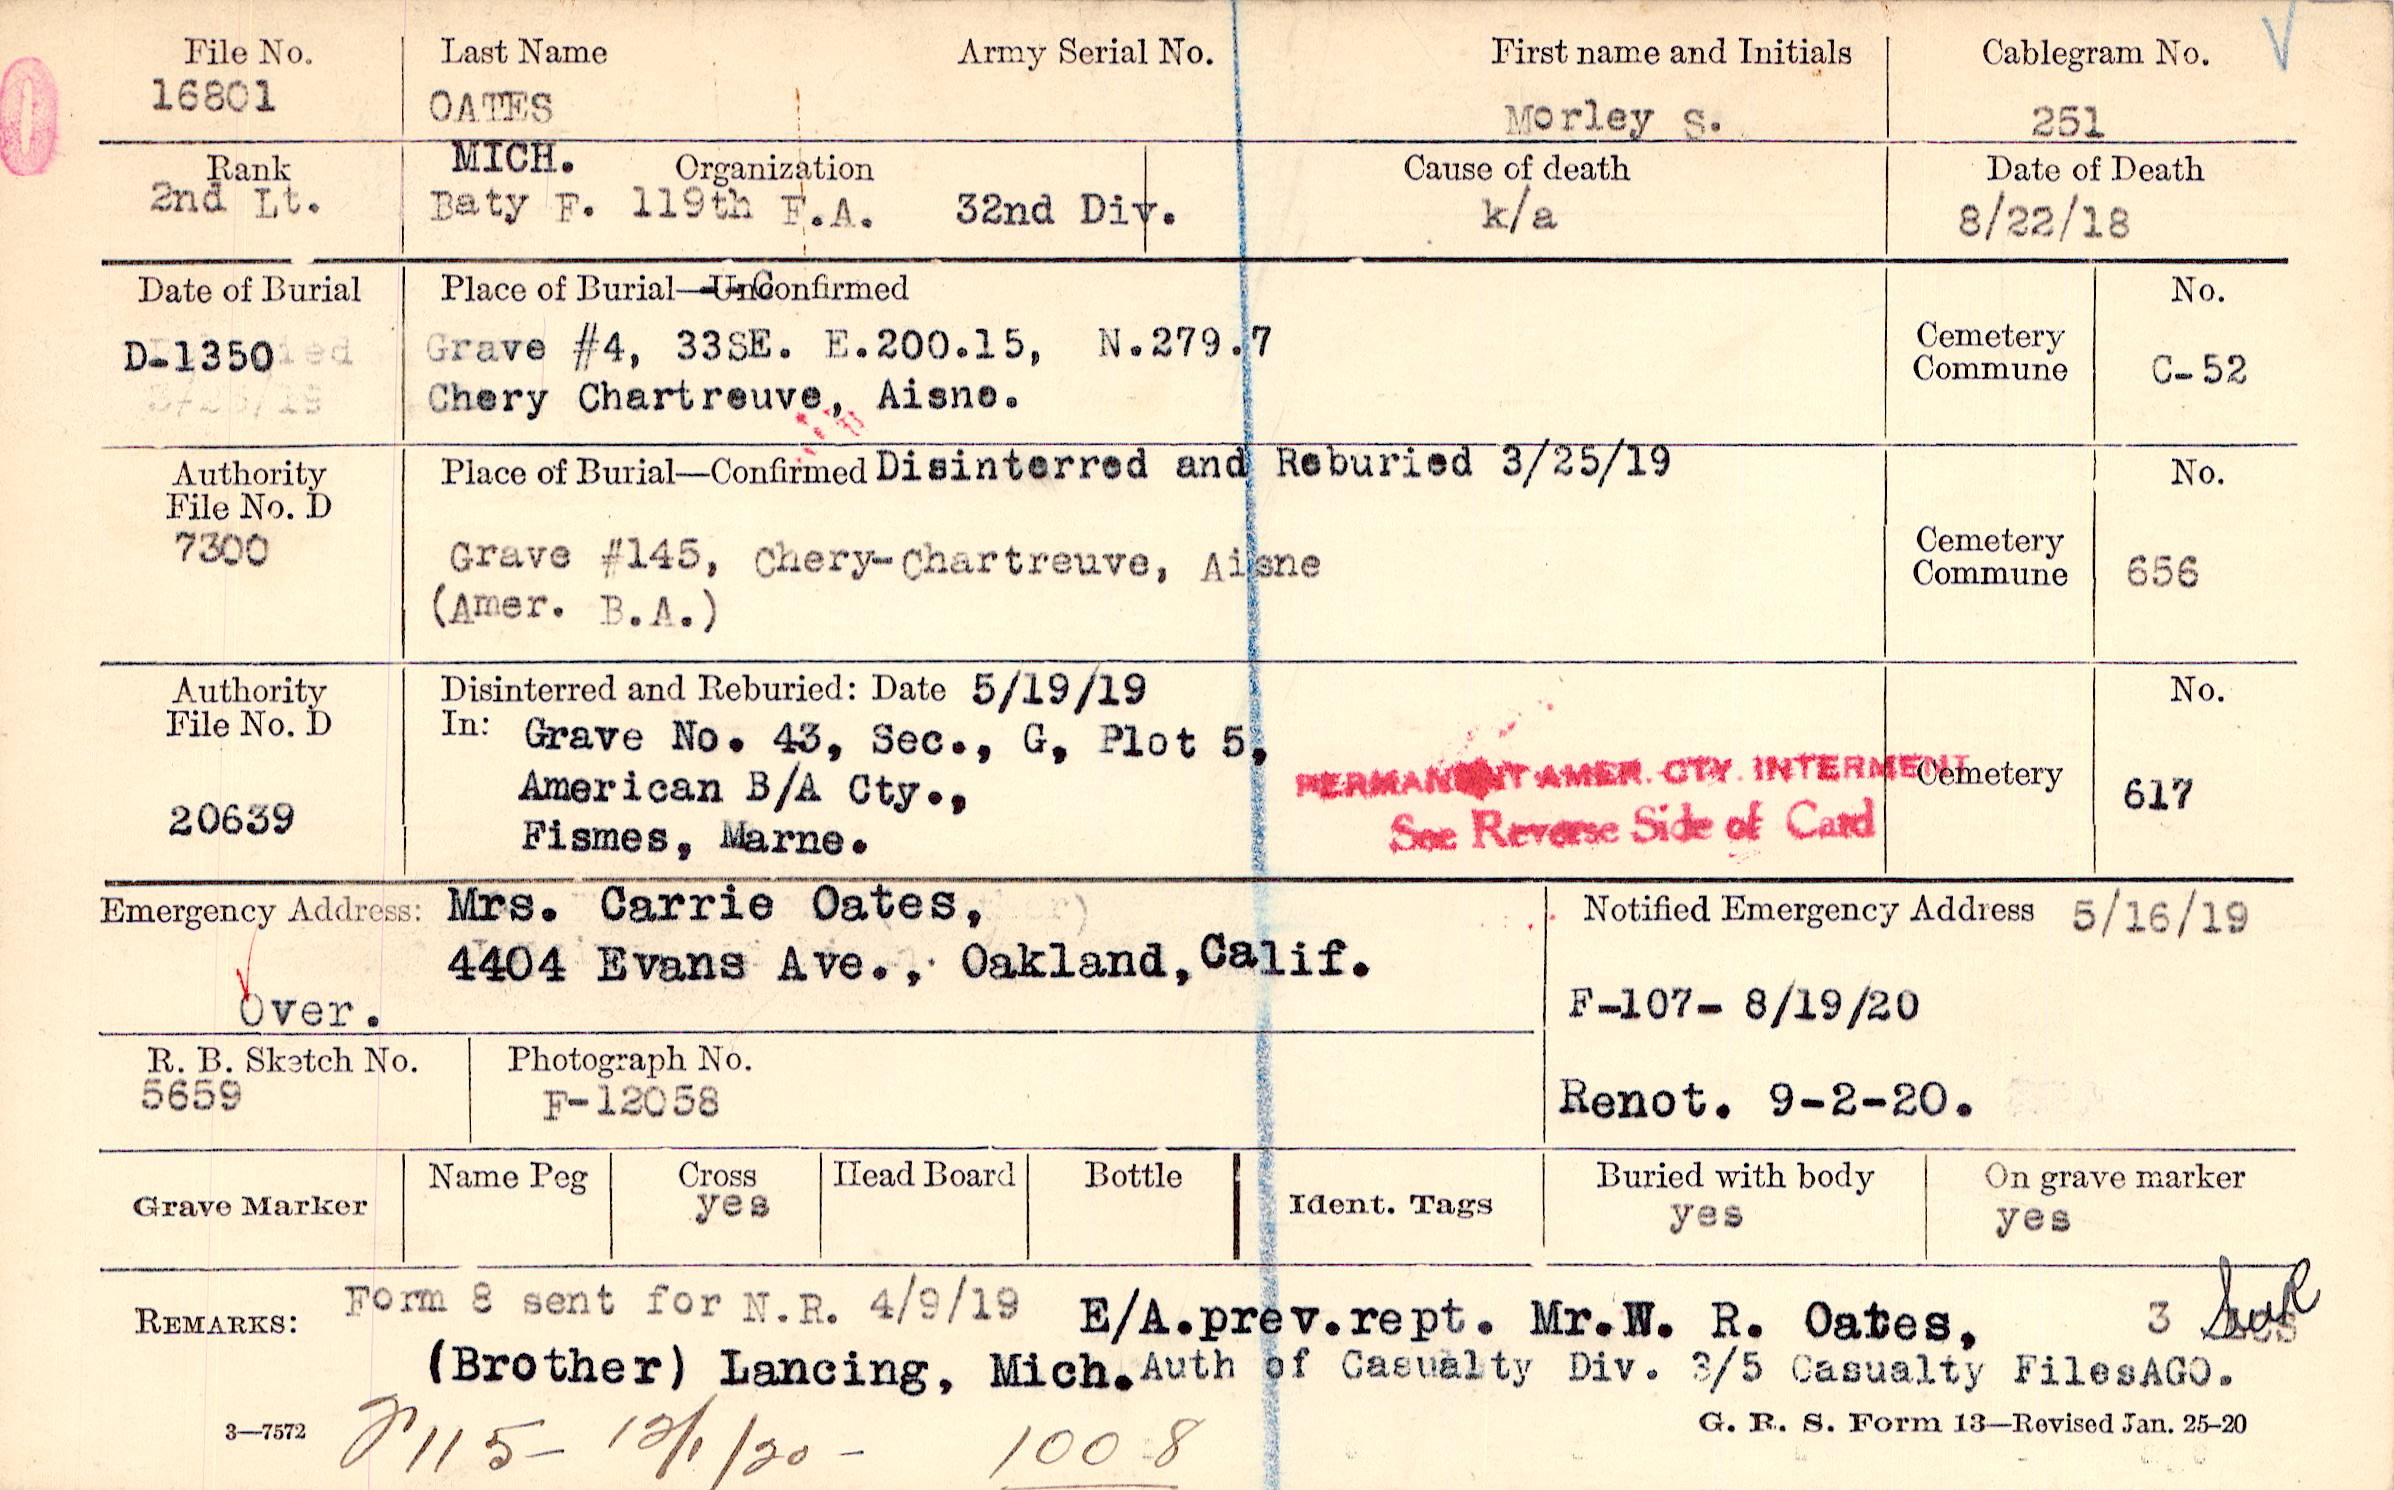 File No. Last Name Army Serial No. First name and Initials Cablegram No.
16801 OATES Morley S. 251
Rank MICH. Organization Cause of death Date of Death
2nd Lt. Baty F. 119th F.A. 32nd Div. k/a 8/22/18
Date of Burial Place of Burial—UnConfirmed No.
D-1350 Grave #4, 33SE. E.200.15, N.279.7 Cemetery
Chery Chartreuve, Aisne. Commune C-52
Authority Place of Burial—Confirmed Disinterred and Reburied 3/25/19 No.
File No. D
7300 Grave #145, Chery-Chartreuve, Aisne Cemetery
(Amer. B.A.) Commune 656
Authority Disinterred and Reburied: Date 5/19/19 No.
File No. D In: Grave No. 43, Sec., G, Plot 5,
American B/A Cty., PERMANENT AMER. CTY. INTERMENT Cemetery 617
20639 Fismes, Marne. See Reverse Side of Card
Emergency Address: Mrs. Carrie Oates, Notified Emergency Address 5/16/19
4404 Evans Ave., Oakland, Calif.
Over. F-107- 8/19/20
R. B. Sketch No. Photograph No.
5659 F-12058 Renot. 9-2-20.
Grave Marker Name Peg Cross Head Board Bottle Ident. Tags Buried with body On grave marker
yes yes yes
REMARKS: Form 8 sent for N.R. 4/9/19 E/A.prev.rept. Mr.W. R. Oates, 3
(Brother) Lancing, Mich. Auth of Casualty Div. 3/5 Casualty FilesAGO.
3—7572 115- 12/1/20 - 100 8 G. R. S. Form 13—Revised Jan. 25-20